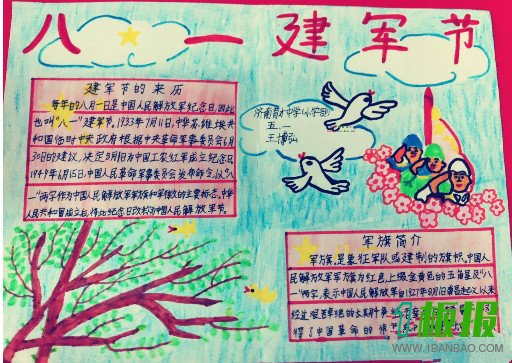 八一建军节
建军节的来历
每年的八月一日是中国人民解放军纪念日,因此
也叫“八一”建军节。1933年7月11日,中华苏维埃共
和国临时中央政府根据中央革命军事委员会6月
30日的建议,决定8月1日为中国工农红军成立纪念日
1949年6月15日,中国人民革命军事委员会发布命令,以“八
一”两字作为中国人民解放军军旗和军徽的主要标志。中华
人民共和国成立后,将此纪念日改称为中国人民解放军建军节。
济南育才中学(小学部)
五.二
王博弘
军旗简介
军旗,是象征军队或建制的旗帜。中国人
民解放军军旗为红色,上缀金黄色的五角星及“八
一”两字,表示中国人民解放军自1927年8月1日南昌起义以来
经过
得了中国革命的伟
板报
WWW.1BANBAO.COM